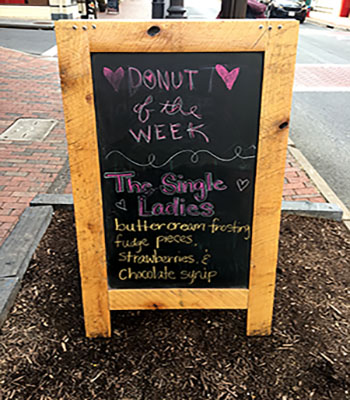 DONUT
of the
WEEK
The Single
Ladies
buttercream frosting
fudge pieces,
strawberries, &
Chocolate syrup